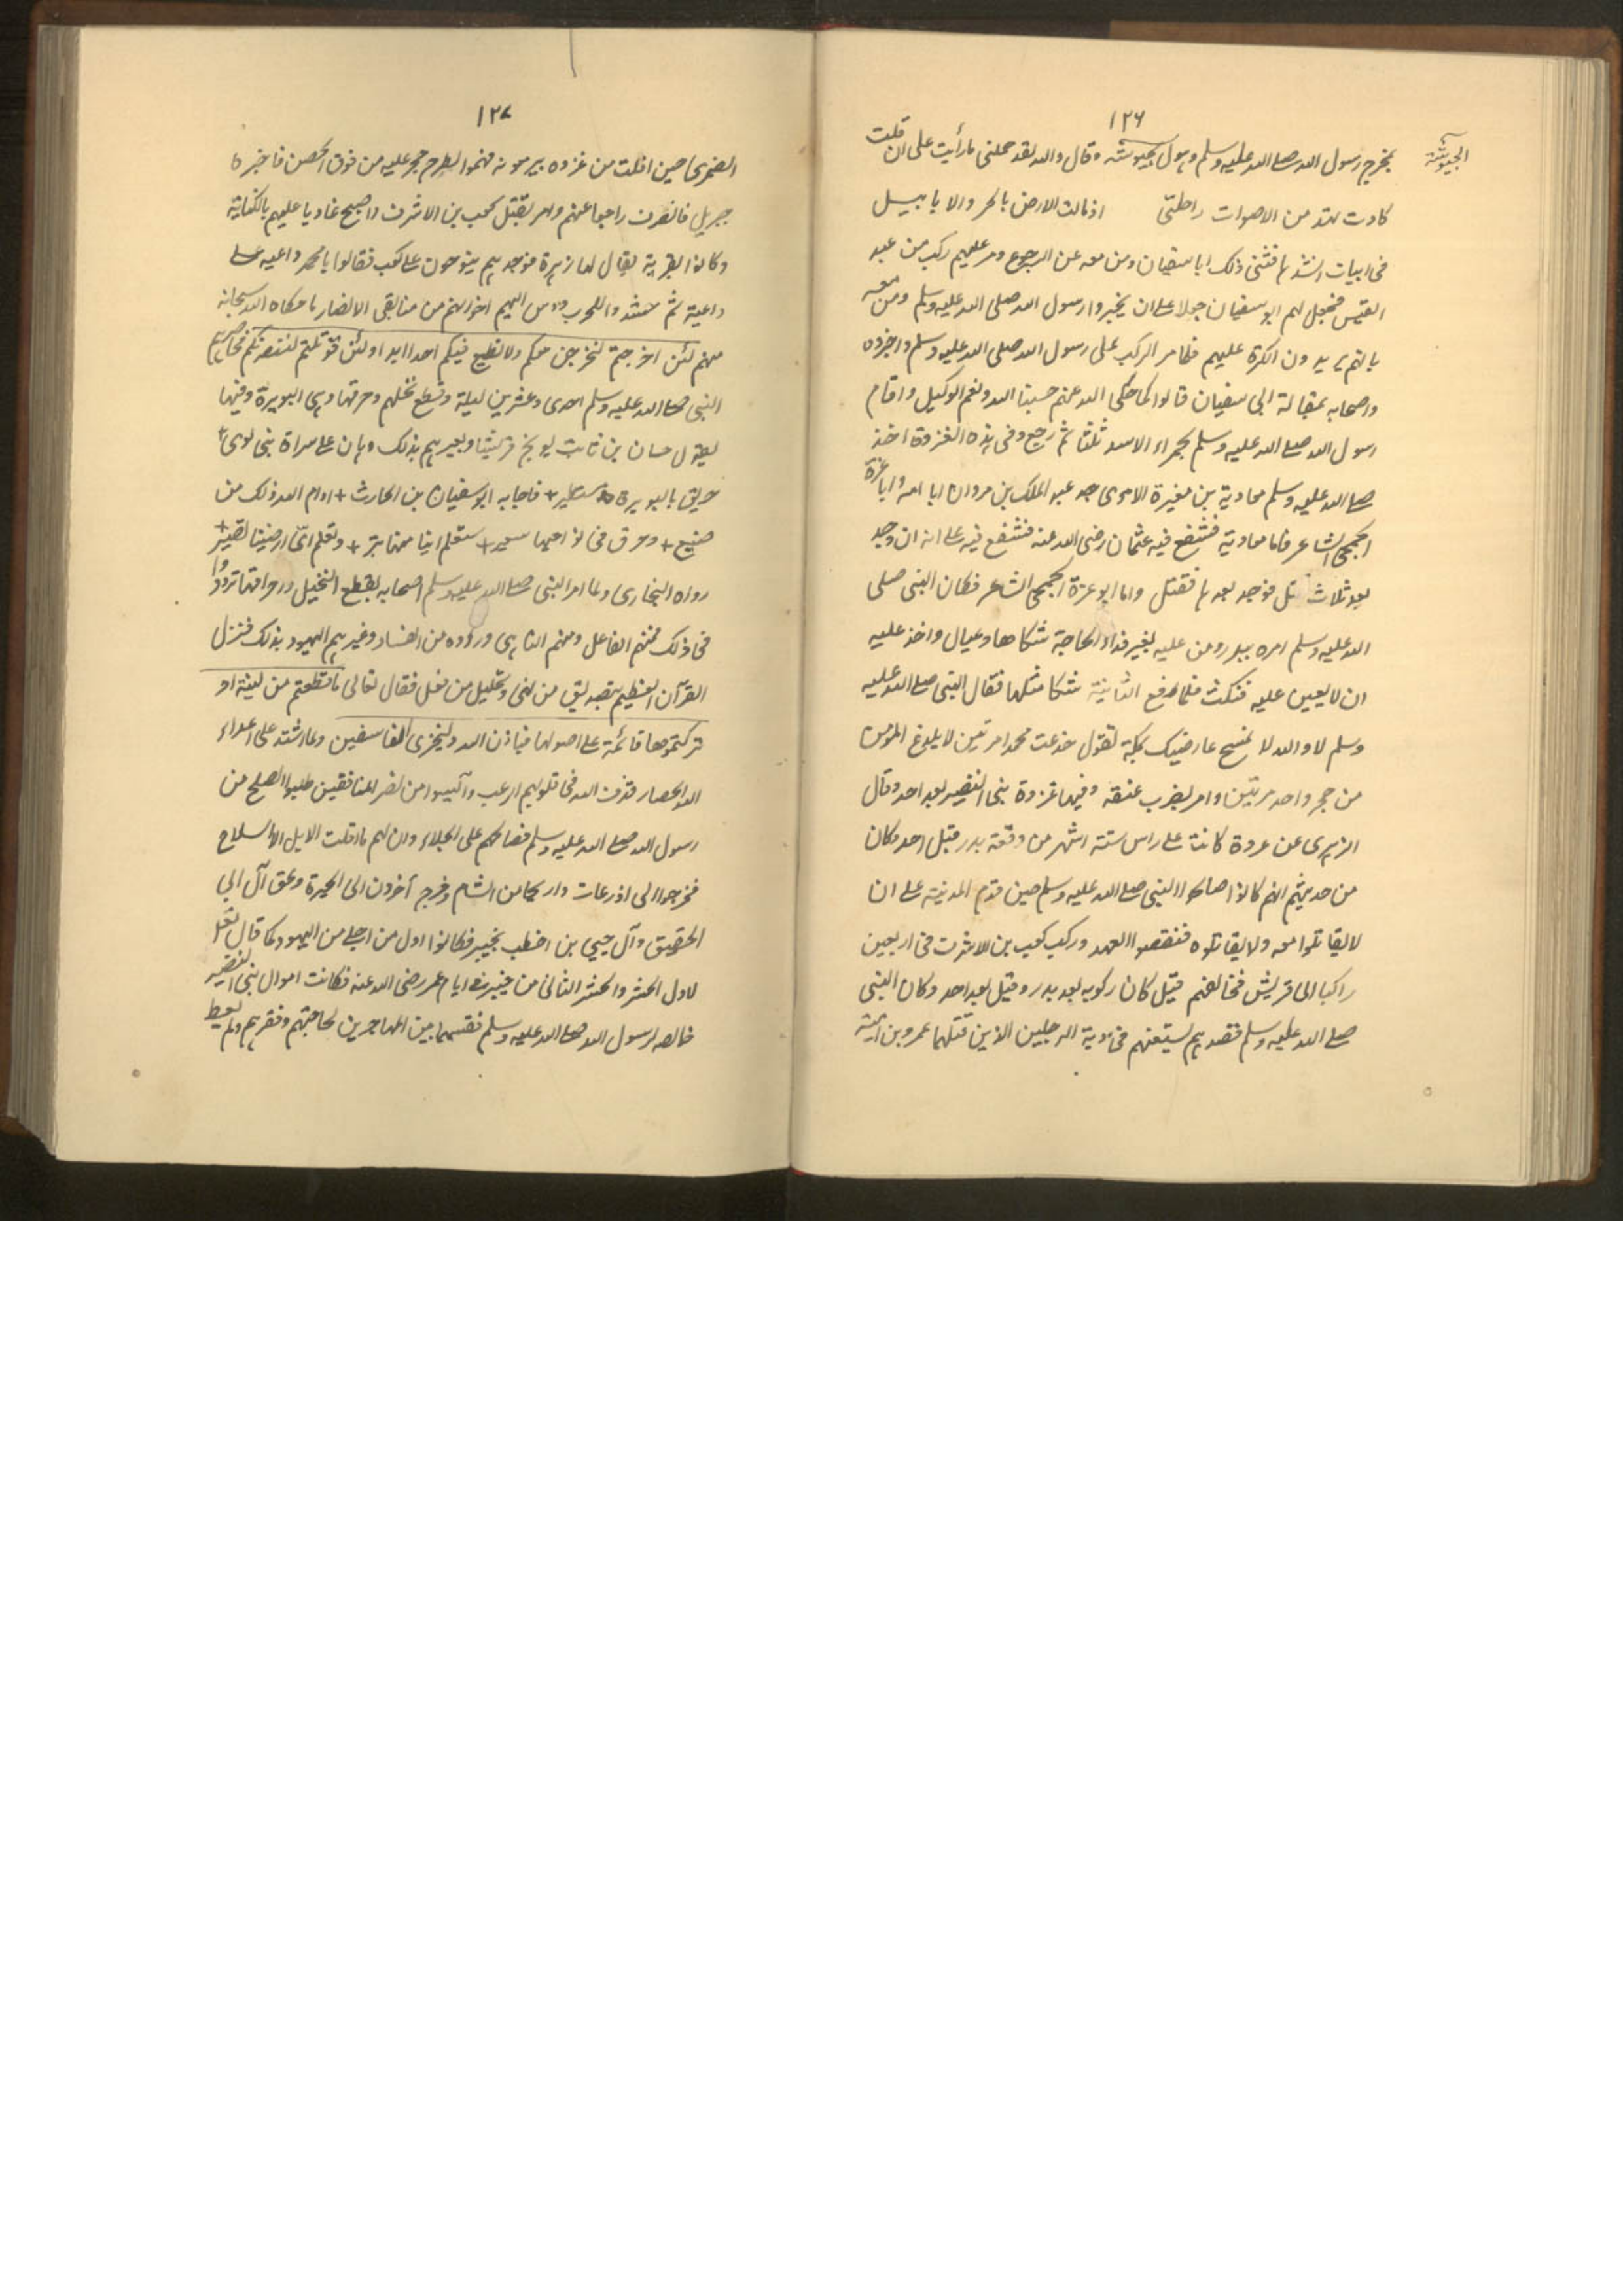 ١٢٦
الجيوشه
بخرج رسول الله صلى الله عليه وسلم وهول بجيوشه وقال والله لقد حملنى ما رأيت على ان قلت
كادت تهد من الاصوات راحلتى اذ مالت الارض بالجرد الابابيل
فى ابيات انشدها فثنى ذلك ابا سفيان ومن معه عن الرجوع ومر عليهم ركب من عبد
القيس فجعل لهم ابو سفيان جعلا على ان يخبروا رسول الله صلى الله عليه وسلم ومن معه
بانهم يريدون الكرة عليهم فلما مر الركب على رسول الله صلى الله عليه وسلم واخبروه
واصحابه بمقالة ابى سفيان قالوا كما حكى الله عنهم حسبنا الله ونعم الوكيل واقام
رسول الله صلى الله عليه وسلم بحمراء الاسد ثلثا ثم رجع وفى هذه الغزوة اخذ
صلى الله عليه وسلم معاوية بن مغيرة الاموى جد عبد الملك بن مروان ابا امه وابا عزة
الجمحى الشاعر فاما معاوية فشفع فيه عثمان رضى الله عنه فشفع فيه على انه ان وجد
بعد ثلاث قتل فوجد بعدها فقتل واما ابو عزة الجمحى الشاعر فكان النبى صلى
الله عليه وسلم اسره ببدر ومن عليه بغير فداء لحاجة شكاها وعيال واخذ عليه
ان لا يعين عليه فنكث فلما وقع الثانية شكا مثلها فقال النبى صلى الله عليه
وسلم لا والله لا تمسح عارضيك بمكة تقول خدعت محمدا مرتين لا يلدغ المؤمن
من جحر واحد مرتين وامر بضرب عنقه وفيها غزوة بنى النضير بعد احد وقال
الزهرى عن عروة كانت على راس ستة اشهر من وقعة بدر قبل احد وكان
من حديثهم انهم كانوا صالحوا النبى صلى الله عليه وسلم حين قدم المدينة على ان
لا يقاتلوا معه ولا يقاتلوه فنقضوا العهد وركب كعب بن الاشرف فى اربعين
راكبا الى قريش فخالفهم قيل كان ركوبه بعد بدر وقيل بعد احد وكان النبى
صلى الله عليه وسلم قصدهم يستعينهم فى دية الرجلين الذين قتلهما عمرو بن امية
١٢٧
الضمرى حين افلت من غزوه بير معونه فهموا بطرح حجر عليه من فوق الحصن فاخبره
جبريل فانصرف راجعا عنهم وامر بقتل كعب بن الاشرف واصبح غاديا عليهم بالكتائب
وكانوا بقرية يقال لها زهرة فوجدهم ينوحون على كعب فقالوا يا محمد داعيه على
داعية ثم حشدوا للحرب ودس اليهم اخوانهم من منافقى الانصار ما حكاه الله سبحانه
منهم لئن اخرجتم لنخرجن معكم ولا نطيع فيكم احدا ابدا ولئن قوتلتم لننصرنكم فحاصرهم
النبى صلى الله عليه وسلم احدى وعشرين ليلة وقطع نخلهم وحرقها وهى البويرة وفيها
يقول حسان بن ثابت يوبخ قريشا ويعيرهم بذلك وهان على سراة بنى لوى +
حريق بالبويرة مستطير + فاجابه ابو سفيان بن الحارث + ادام الله ذلك من
صنيع + وحرق فى نواحيها سعير + ستعلم اينا منها بنز + وتعلم اى ارضينا تضير +
رواه البخارى ولما امر النبى صلى الله عليه وسلم اصحابه بقطع النخيل وحراقها ترددوا
فى ذلك فمنهم الفاعل ومنهم الناهى وراوه من الفساد وغيرهم اليهود بذلك فنزل
القرآن العظيم بتصديق من نهى وتحليل من فعل فقال تعالى ما قطعتم من لينة او
تركتموها قائمة على اصولها فباذن الله وليخزى الفاسقين ولما اشتد على اعداء
الله الحصار قذف الله فى قلوبهم الرعب وآيسوا من نصر المنافقين طلبوا الصلح من
رسول الله صلى الله عليه وسلم فصالحهم على الجلاء وان لهم ما اقلت الابل الا السلاح
فخرجوا الى اذرعات واريحا من الشام وخرج آخرون الى الحيرة ولحق آل ابى
الحقيق وآل حيى بن اخطب بخيبر فكانوا اول من اجلى من اليهود كما قال تعالى
لاول الحشر والحشر الثانى من خيبر فى ايام عمر رضى الله عنه فكانت اموال بنى النضير
خالصه لرسول الله صلى الله عليه وسلم فقسمها بين المهاجرين لحاجتهم وفقرهم ولم يعط